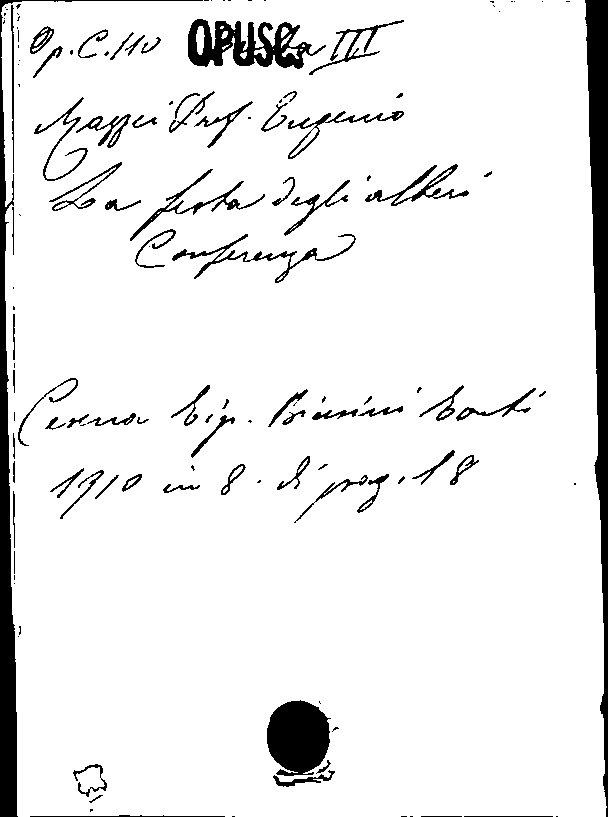 Op. C. 110 OPUSC. III
Mazzei Prof. Eugenio
La festa degli alberi
Conferenza
Cesena Tip. Biasini Tonti
1910 in 8. di pag. 18